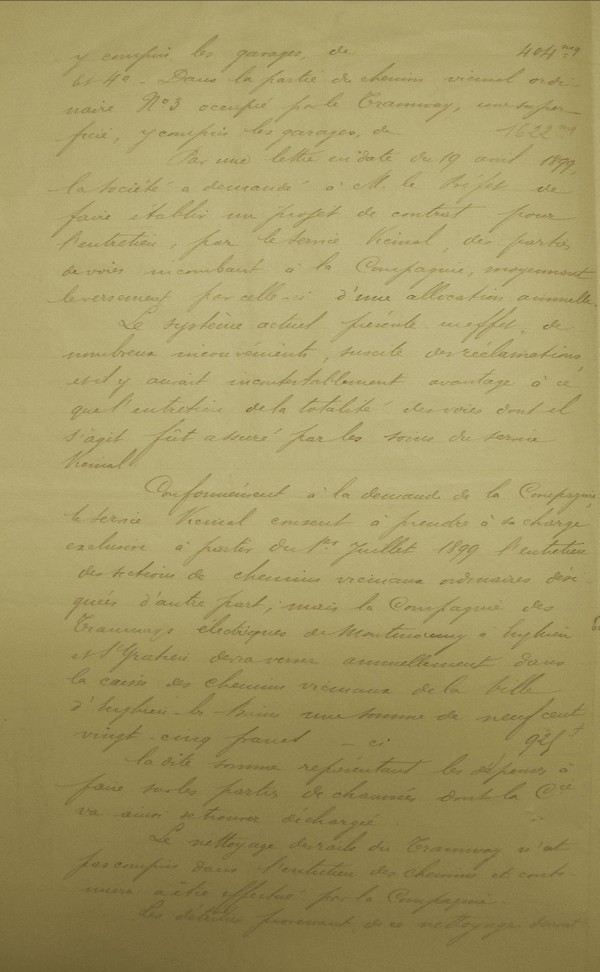 y compris les garages, de 404 mq
et 4°- Dans la partie du chemin vicinal ordi-
naire N°3 occupée par le Tramway, une super
ficie, y compris les garages, de 1622 mq
Par une lettre en date du 19 avril 1899,
la société a demandé à M. le Préfet de
faire établir un projet de contrat pour
l'entretien, par le service Vicinal, des parties
de voies incombant à la Compagnie, moyennant
le versement par celle-ci d'une allocation annuelle.
Le système actuel présente en effet de
nombreux inconvénients, suscite des réclamations,
et il y aurait incontestablement avantage à ce
que l'entretien de la totalité des voies dont il
s'agit fût assuré par les soins du service
Vicinal.
Conformément à la demande de la Compagnie,
le service Vicinal consent à prendre à sa charge
exclusive à partir du 1er Juillet 1899 l'entretien
des sections de chemins vicinaux ordinaires dési-
gnées d'autre part; mais la Compagnie des
Tramways électriques de Montmorency à Enghien
et St Gratien devra verser annuellement dans
la caisse des chemins vicinaux de la ville
d'Enghien-les-Bains une somme de neuf cent
vingt cinq francs - ci 925 f
la dite somme représentant les dépenses à
faire sur les parties de chaussées dont la Cie
va ainsi se trouver déchargée
Le nettoyage des rails du Tramway n'est
pas compris dans l'entretien des chemins et conti-
nuera à être effectué par la Compagnie.
Les détritus provenant de ce nettoyage devront